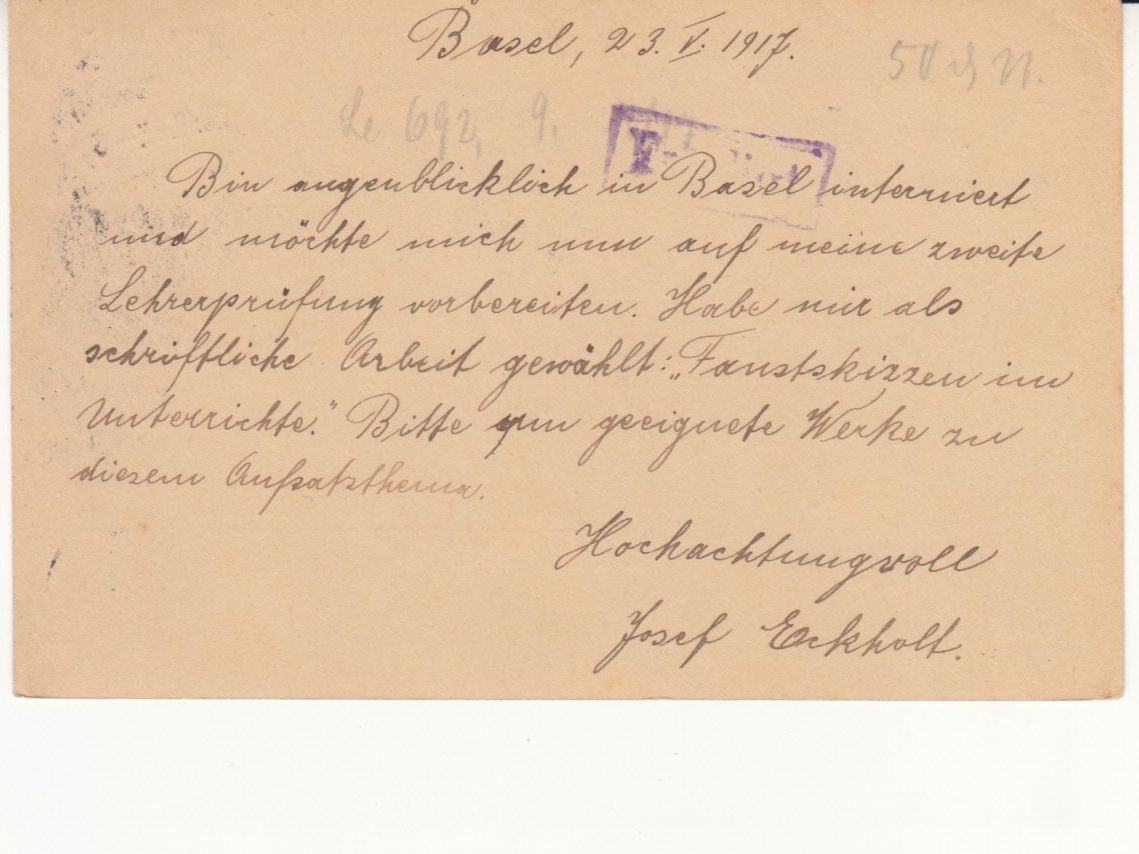 Basel, 23. V. 1917.
Le 692, 9.
Bin augenblicklich in Basel interniert
und möchte mich nun auf meine zweite
Lehrerprüfung vorbereiten. Habe mir als
schriftliche Arbeit gewählt: „Faustskizzen im
Unterrichte." Bitte um geeignete Werke zu
diesem Aufsatzthema.
Hochachtungsvoll
Josef Eckholt.